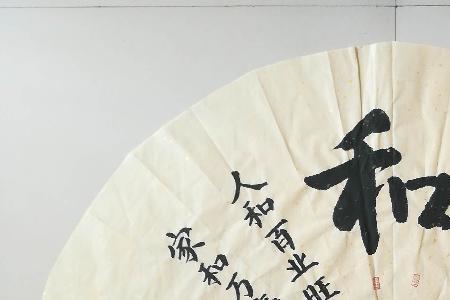 和
人和百业旺
家和万